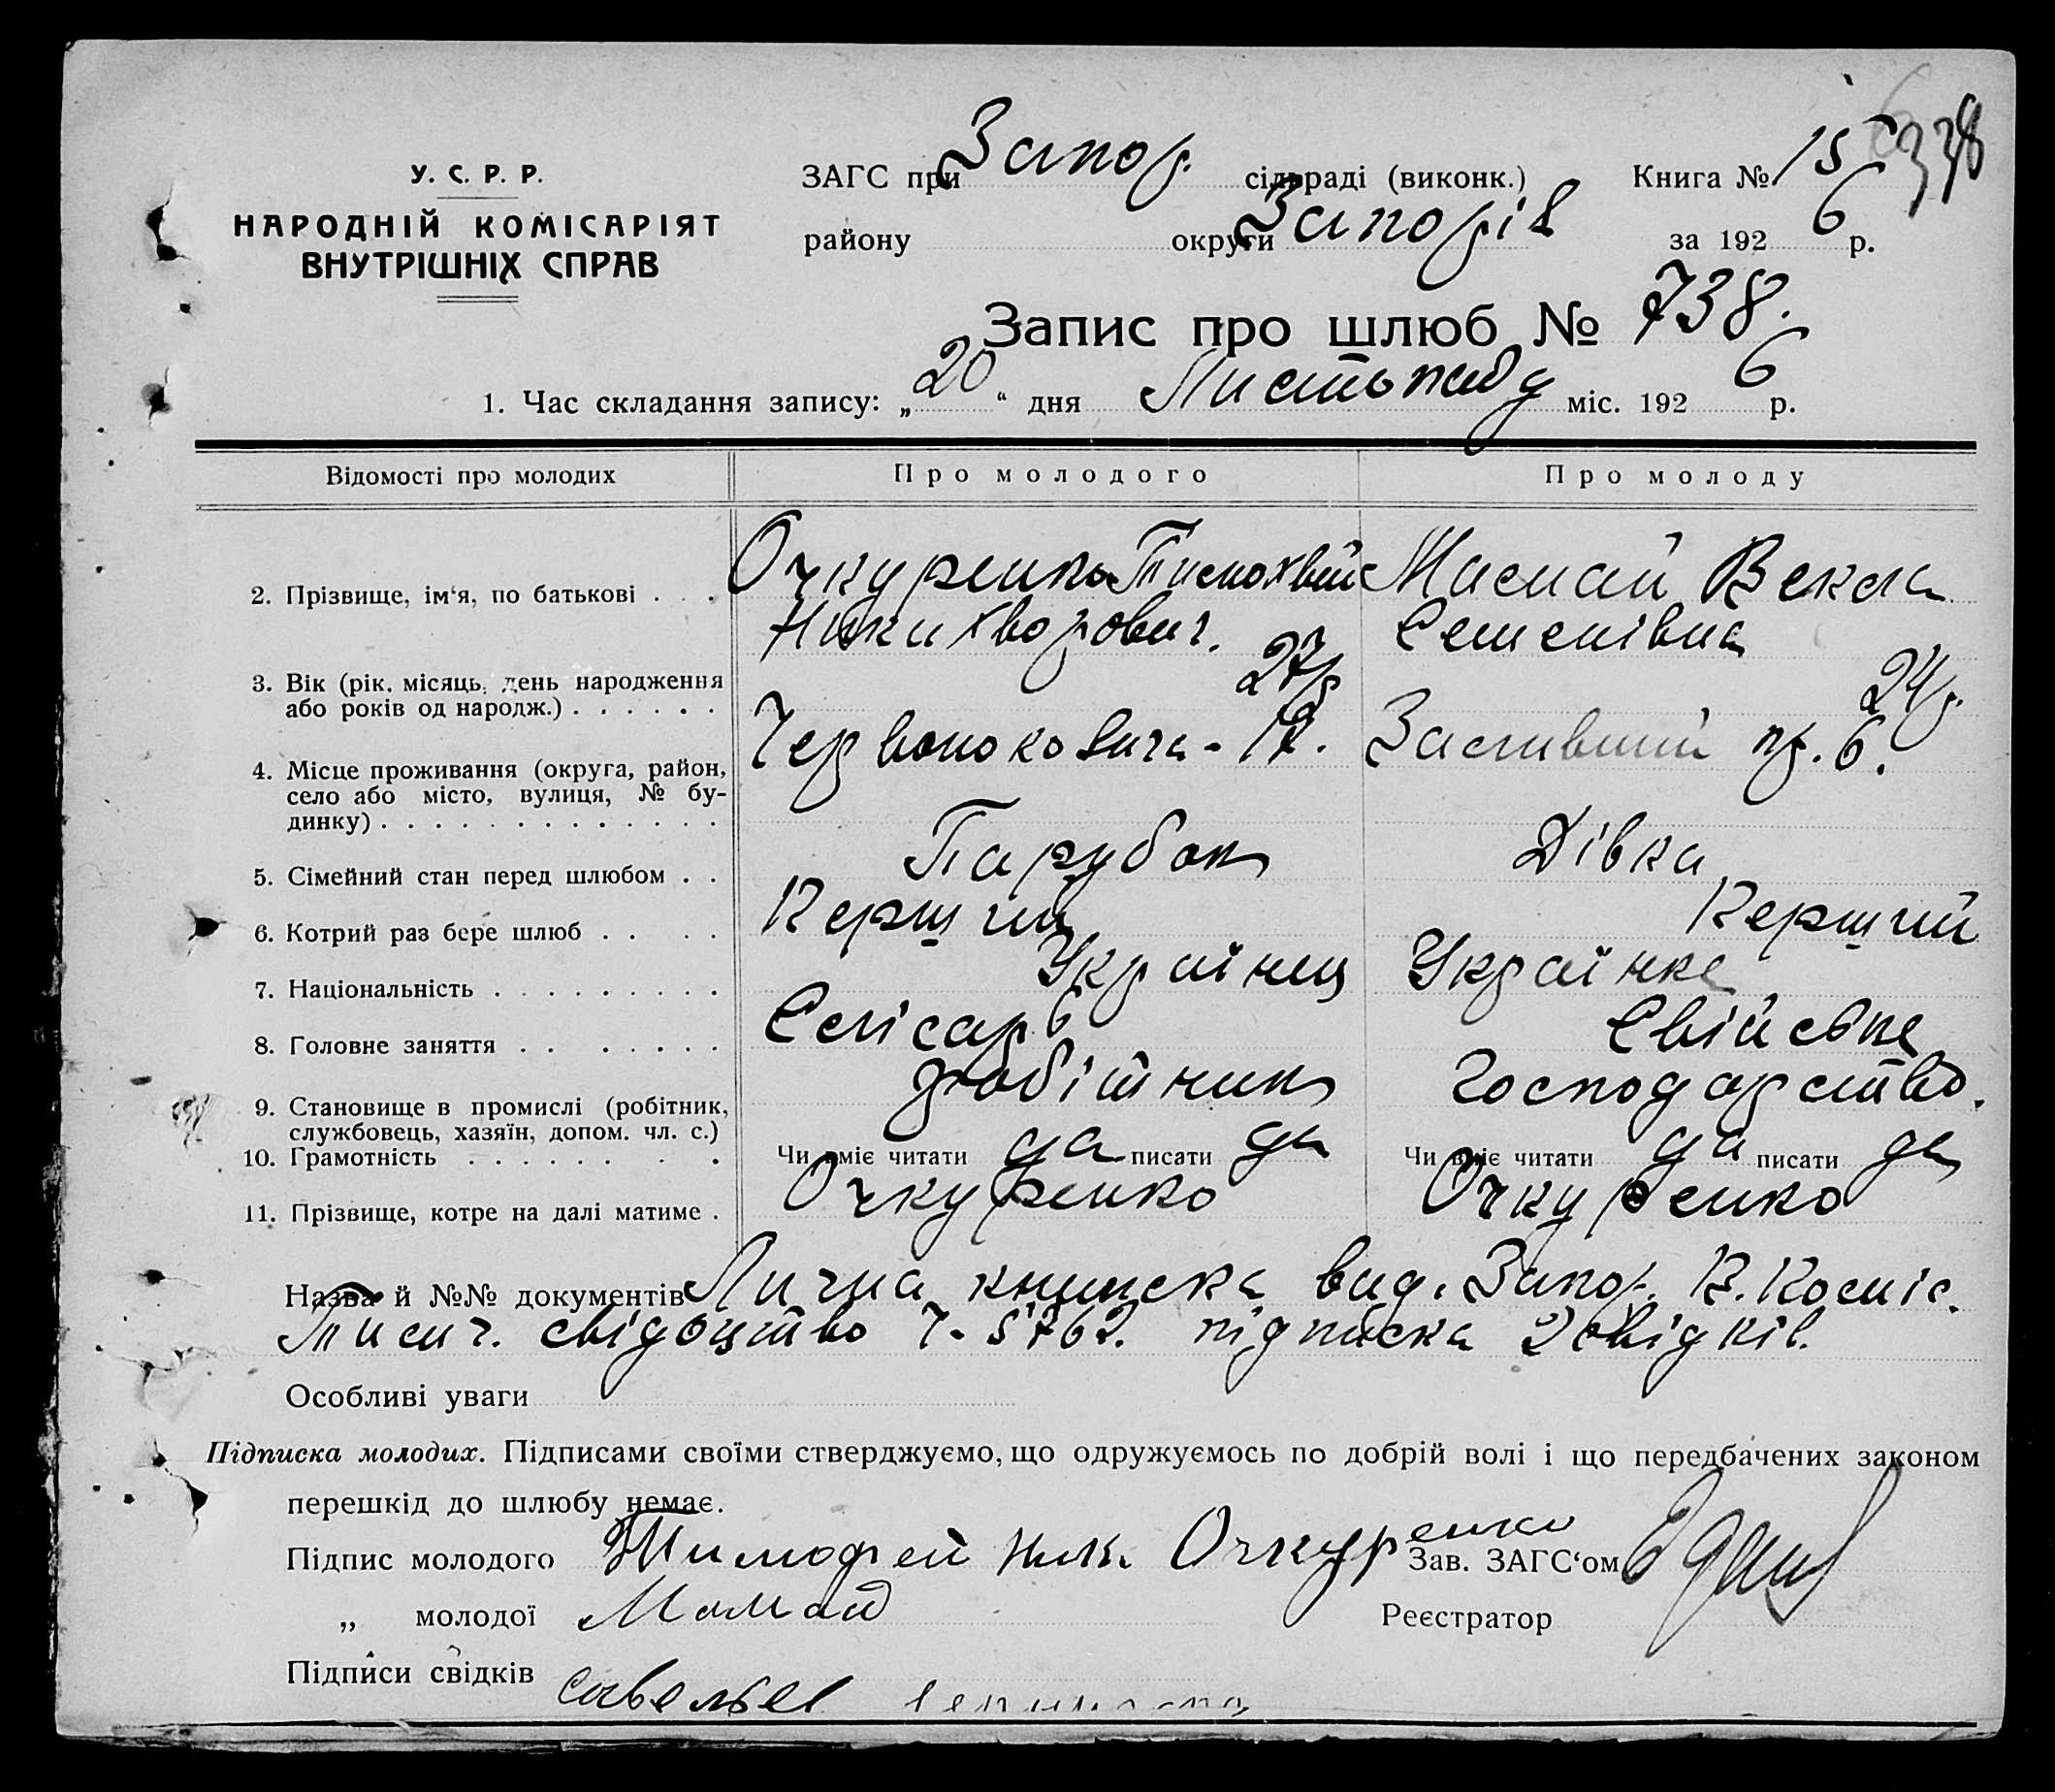 338
У. С. Р. Р.
НАРОДНІЙ КОМІСАРІЯТ
ВНУТРІШНІХ СПРАВ
ЗАГС при Запор. сільраді (виконк.) Книга № 15
району округи Запоріз за 1926 р.
Запис про шлюб № 738.
1. Час складання запису: „20" дня Листопаду міс. 1926 р.
Відомості про молодих Про молодого Про молоду
2. Прізвище, ім'я, по батькові . . . Очкуренко Тимохвій Мамай Векла
Никихворович. Семенівна
3. Вік (рік, місяць, день народження 27 р. 24 р.
або років од народж.) . . . . . .
4. Місце проживання (округа, район, Червонокозача - 12. пр. 6.
село або місто, вулиця, № бу-
динку) . . . . . . . . . . . . .
5. Сімейний стан перед шлюбом . . Парубок Дівка
6. Котрий раз бере шлюб . . . . Перший Перший
7. Національність . . . . . . . . . Українец Українка
8. Головне заняття . . . . . . . Слісарь Свійське
9. Становище в промислі (робітник, робітник господарство.
службовець, хазяїн, допом. чл. с.)
10. Грамотність . . . . . . . . Чи вміє читати да писати да Чи вміє читати да писати да
11. Прізвище, котре на далі матиме . Очкуренко Очкуренко
Назва й №№ документів Лична книжка вид. Запор.
Тимч. свідоцтво Ч. 5762. підписка 2 свідків.
Особливі уваги
Підписка молодих. Підписами своїми стверджуємо, що одружуємось по добрій волі і що передбачених законом
перешкід до шлюбу немає.
Підпис молодого Тимофей Ник. Очкуренко Зав. ЗАГС'ом
„ молодої Мамай Реєстратор
Підписи свідків Савельев